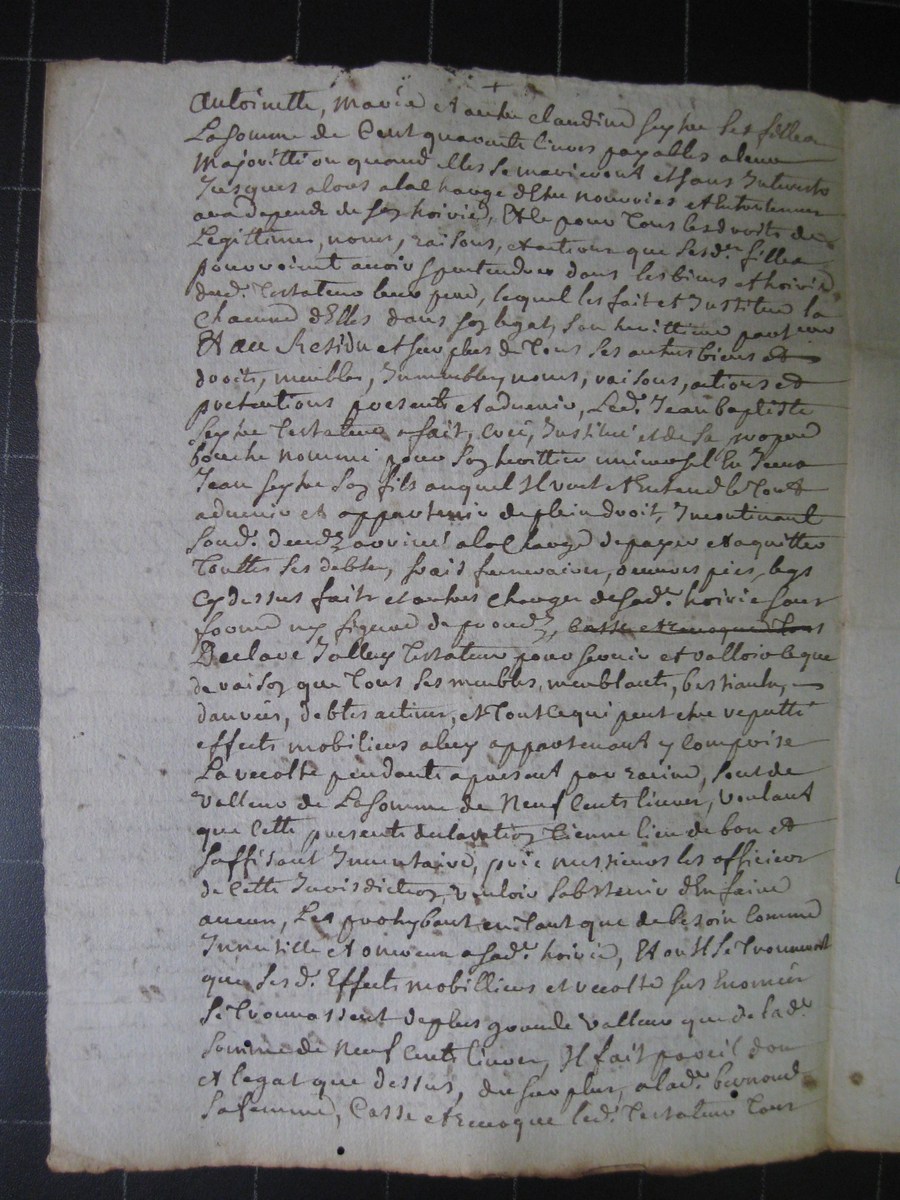 Antoinette, Marie et autre claudine seytre ses filles
La somme de Cent quarante livres payables a leur
Majoritté ou quand elles se marieront et sans Interests
Jusques alors a la charge d'Etre nourries et Entretenues
aux depends de son hoirie, Et ce pour Tous les droits de
Legittime, noms, raisons, et actions que sesd.es filles
pourroient avoir et pretendre dans les biens et hoirie
dud.t Testateur leur pere, lequel les fait et Institue
Chacune d'Elles dans son legat, son herittiere particu
Et au Residu et surplus de Tous ses autres biens et
droits, meubles, Immeubles, noms, raisons, actions et
pretentions presents et advenir, Led.t Jean baptiste
Seytre Testateur a fait, créé, Institué et de sa propre
bouche nommé pour son herittier universel
Jean seytre son fils auquel Il veut et Entend le Tout
advenir et appartenir de plein droit, Incontinant
Sond.t deced arrivé a la Charge de payer et aquitter
Touttes ses debtes, frais funeraires, oeuvres pies, legs
Cy dessus faits et autres charges de sad.te hoirie sans
forme ny figure de proced, Casse et revoque Tous
Declare Icelluy Testateur pour servir et valloir ce que
de raison que Tous ses meubles, meublants, bestiaux,
danrées, debtes actives, et Tout ce qui peut etre reputté
effects mobiliers a luy appartenant y Comprise
La recolte pendante a present par racine, sont de
valleur de La somme de Neuf Cents livres, voulant
que Cette presente declaration Tienne lieu de bon et
suffisant Inventaire, prie messieurs les officiers
de Cette Jurisdiction, vouloir s'abstenir d'En faire
aucun, Les prohybant en Tant que de besoin Comme
Innutille et onereux a sad.te hoirie, Et ou Il se Trouveroit
que sesd.ts Effects mobilliers et recolte sus Enoncés
se Trouvassent de plus grande valleur que de lad.te
somme de Neuf Cents livres, Il fait pareil don
et legat que dessus, du surplus, a lad.te
sa femme, Casse et revoque led.t Testateur Tous